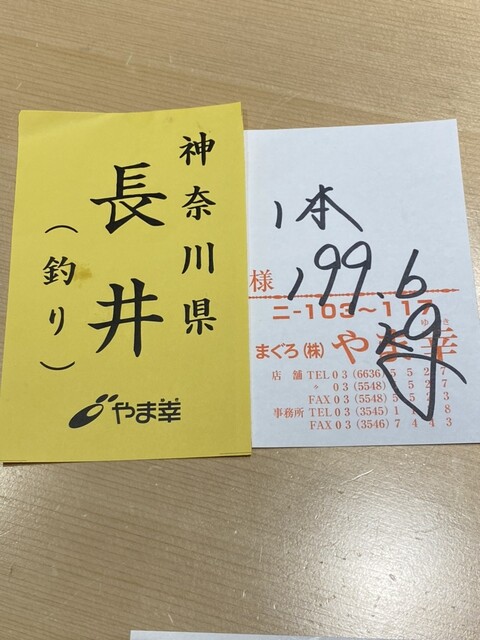 神奈川県
長井
(釣り)
やま幸
1本
199.6
kg
様
ニ-103~117
ゆき
まぐろ(株)やま幸
店舗 TEL 03(6636)5527
FAX 03(5548)5523
事務所 TEL 03(3545)
FAX 03(3546)7443